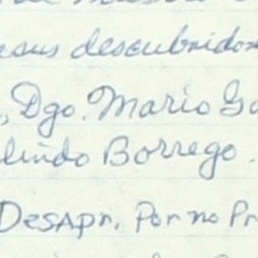 sus descubridor
Dgo. Mario Ga
lindo Borrego.
DesApr. Por no Pr